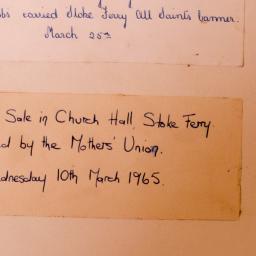 carried Stoke Ferry All Saints banner.
March 25th
Sale in Church Hall, Stoke Ferry.
by the Mothers' Union.
10th March 1965.